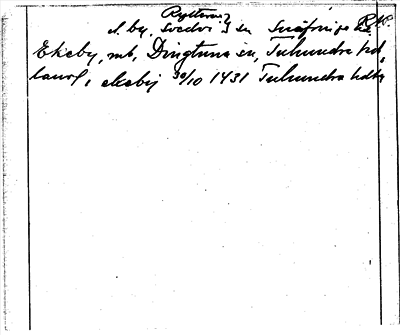 Rytterne?
d. by, Svedvi? sn Snäfringe hd
Ekeby, mt, Dingtuna sn, Tuhundra hd,
ekeby 30/10 1431 Tuhundra hdbr